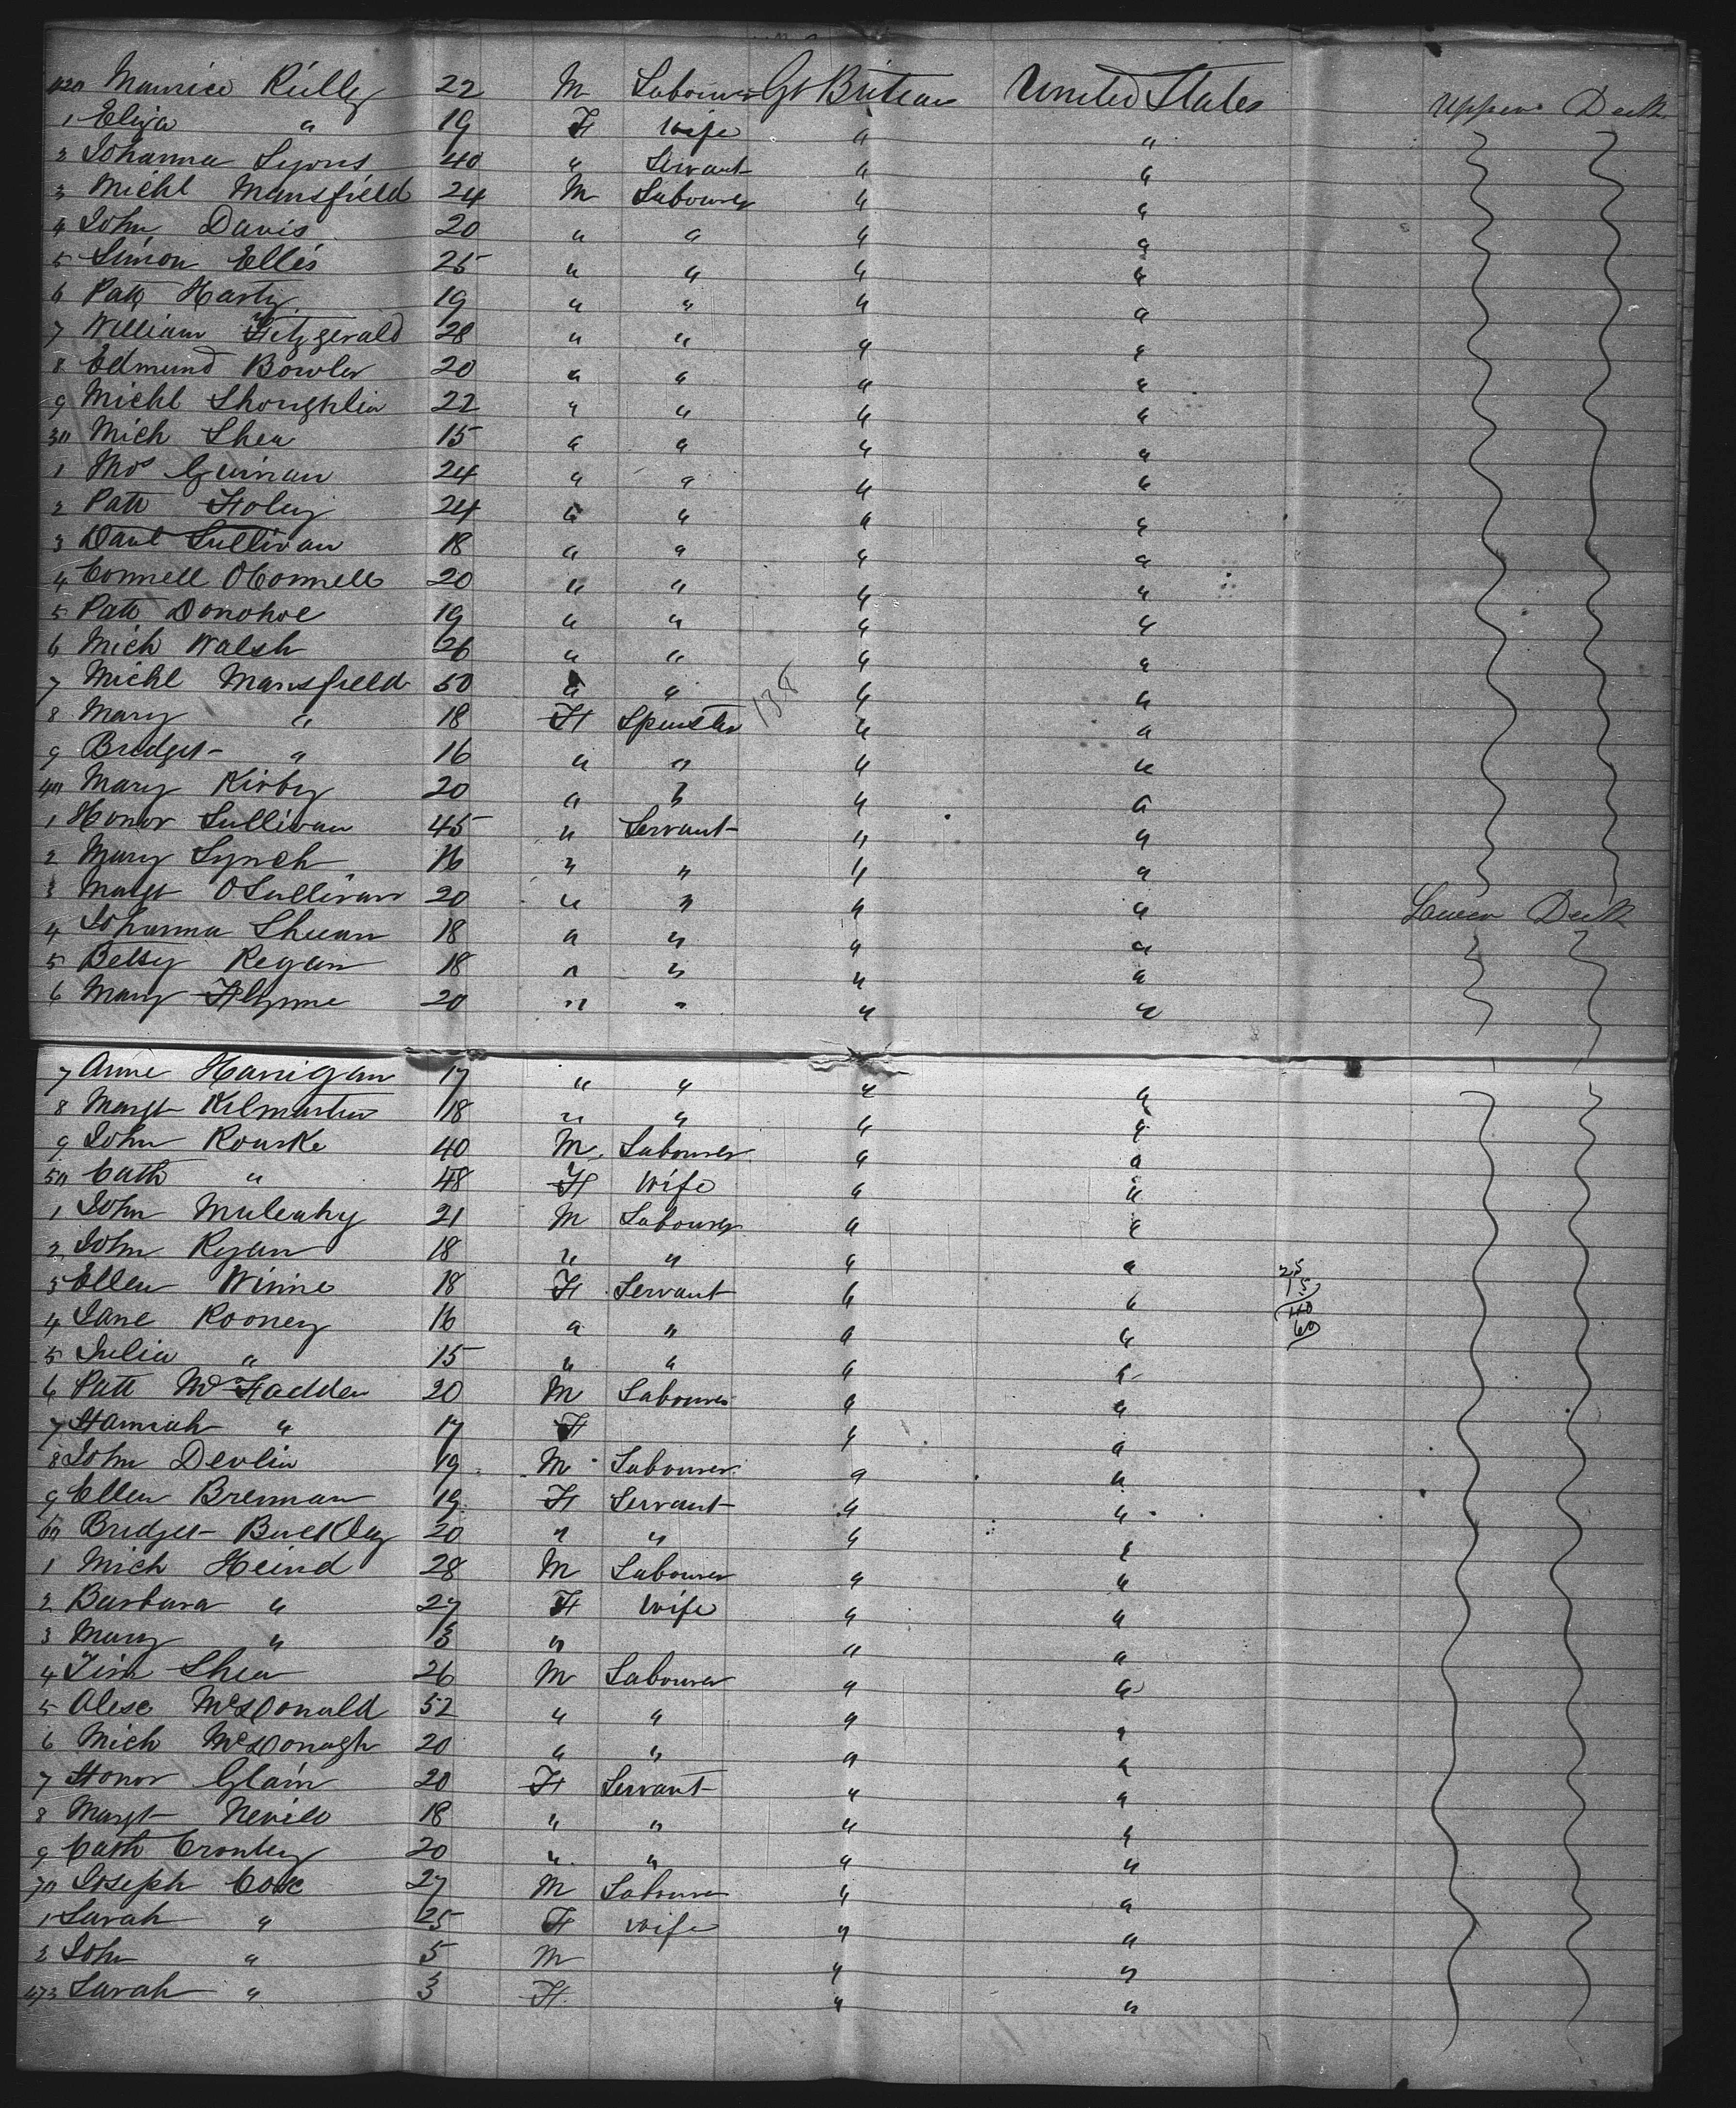 420 Maurice Rielly 22 M Labourer Gt Britain United States Upper Deck
1 Eliza " 19 F Wife " "
2 Johanna Lyons 40 " Servant " "
3 Michl Mansfield 24 M Labourer " "
4 John Davis 20 " " " "
5 Simon Ellis 25 " " " "
6 Patk Harty 19 " " " "
7 William Fitzgerald 28 " " " "
8 Edmund Bowler 20 " " " "
9 Michl Shoughlin 22 " " " "
30 Mich Shea 15 " " " "
1 Thos Guinan 24 " " " "
2 Patk Foley 24 " " " "
3 Danl Sullivan 18 " " " "
4 Connell OConnell 20 " " " "
5 Patk Donohoe 19 " " " "
6 Mich Walsh 26 " " " "
7 Michl Mansfield 50 " " " "
8 Mary " 18 F Spinster 138 " "
9 Bridget " 16 " " " "
40 Mary Kirby 20 " " " "
1 Honor Sullivan 45 " Servant " "
2 Mary Lynch 16 " " " "
3 Margt OSullivan 20 " " " " Lower Deck
4 Johanna Sheean 18 " " " "
5 Betsy Regan 18 " " " "
6 Mary Flynne 20 " " " "
7 Anne Hanigan 17 " " " "
8 Margt Kilmartin 18 " " " "
9 John Rourke 40 M Labourer " "
50 Cath " 48 F Wife " "
1 John Mulcahy 21 M Labourer " "
2 John Ryan 18 " " " "
3 Ellen Winne 18 F Servant " "
4 Jane Rooney 16 " " " "
5 Julia " 15 " " " "
6 Patt McFadden 20 M Labourer " "
7 Hannah " 17 F " "
8 John Devlin 19 M Labourer " "
9 Ellen Brennan 19 F Servant " "
60 Bridget Buckley 20 " " " "
1 Mich Heind 28 M Labourer " "
2 Barbara " 27 F Wife " "
3 Mary " " " "
4 Tim Shea 26 M Labourer " "
5 Alexe McDonald 52 " " " "
6 Mich McDonagh 20 " " " "
7 Honor Glain 20 F Servant " "
8 Margt Nevill 18 " " " "
9 Cath Cronley 20 " " " "
70 Joseph 27 M Labourer " "
1 Sarah " 25 F Wife " "
2 John " 5 M " "
473 Sarah " 3 F " "